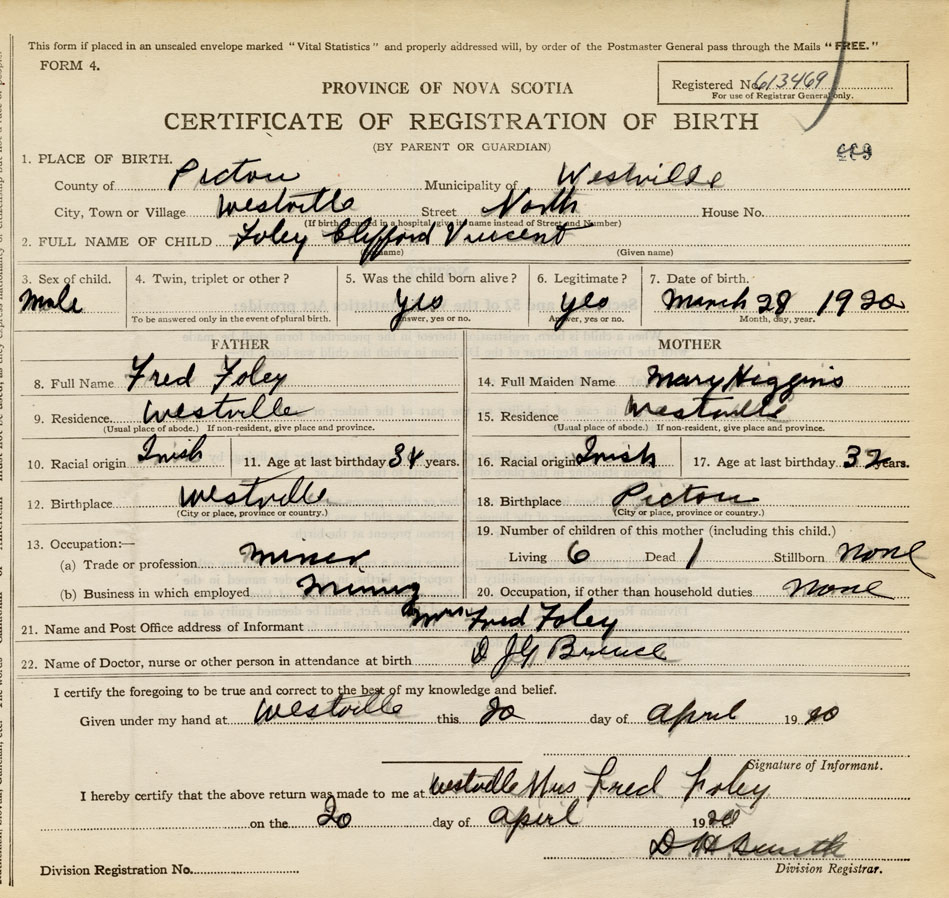 This form if placed in an unsealed envelope marked "Vital Statistics" and properly addressed will, by order of the Postmaster General pass through the Mails "FREE."
FORM 4.
Registered No. 613469
For use of Registrar General only.
PROVINCE OF NOVA SCOTIA
CERTIFICATE OF REGISTRATION OF BIRTH
(BY PARENT OR GUARDIAN)
1. PLACE OF BIRTH.
County of Pictou Municipality of Westville
City, Town or Village Westville Street North House No.
(If birth occurred in a hospital give its name instead of Street and Number)
2. FULL NAME OF CHILD Foley Clifford Vincent
(Given name)
3. Sex of child. 4. Twin, triplet or other? 5. Was the child born alive? 6. Legitimate? 7. Date of birth.
Male yes yes March 28 1920
To be answered only in the event of plural birth. Answer, yes or no. Answer, yes or no. Month, day, year.
FATHER MOTHER
8. Full Name Fred Foley 14. Full Maiden Name Mary Higgins
9. Residence Westville 15. Residence Westville
(Usual place of abode.) If non-resident, give place and province. (Usual place of abode.) If non-resident, give place and province.
10. Racial origin Irish 11. Age at last birthday 34 years. 16. Racial origin Irish 17. Age at last birthday 32 years.
12. Birthplace Westville 18. Birthplace Pictou
(City or place, province or country.) (City or place, province or country.)
13. Occupation:— 19. Number of children of this mother (including this child.)
(a) Trade or profession miner Living 6 Dead 1 Stillborn none
(b) Business in which employed Mining 20. Occupation, if other than household duties. none
21. Name and Post Office address of Informant Mrs Fred Foley
22. Name of Doctor, nurse or other person in attendance at birth D J G
I certify the foregoing to be true and correct to the best of my knowledge and belief.
Given under my hand at Westville this 20 day of April 1920
Signature of Informant.
I hereby certify that the above return was made to me at Westville Mrs Fred Foley
on the 20 day of April 1920
D H Smith
Division Registration No. Division Registrar.